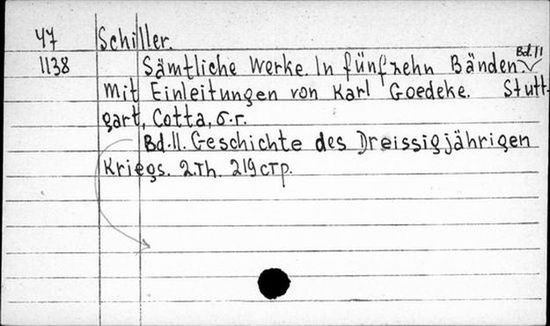 47 Schiller.
Bd. 11
1138 Sämtliche Werke. In fünfzehn Bänden
mit Einleitungen von Karl Goedeke. Stutt-
gart, Cotta, б.г.
Bd. 11. Geschichte des Dreissigjährigen
Kriegs. 2.Th. 219 стр.